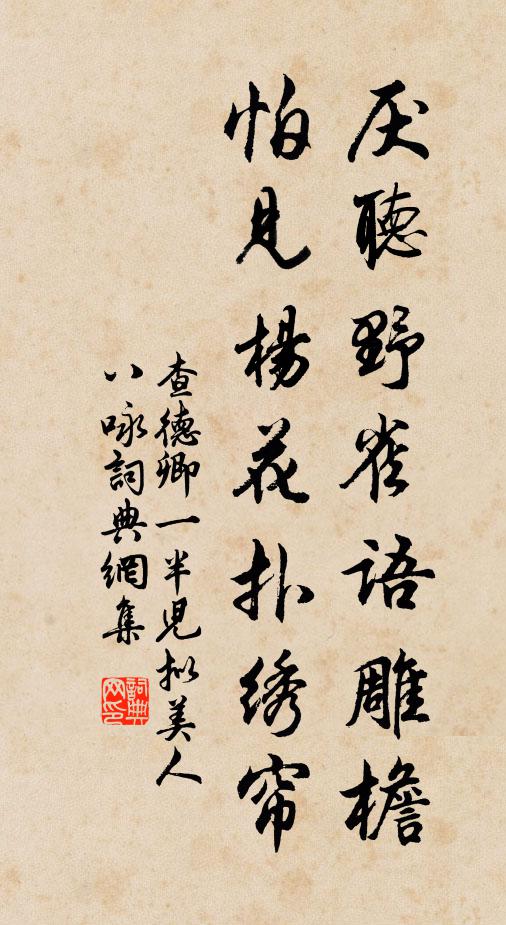 厌聴野雀语雕檐
怕见楊花扑绣帘
查德卿一半児拟美人
八咏詞典網集
詞典
网印